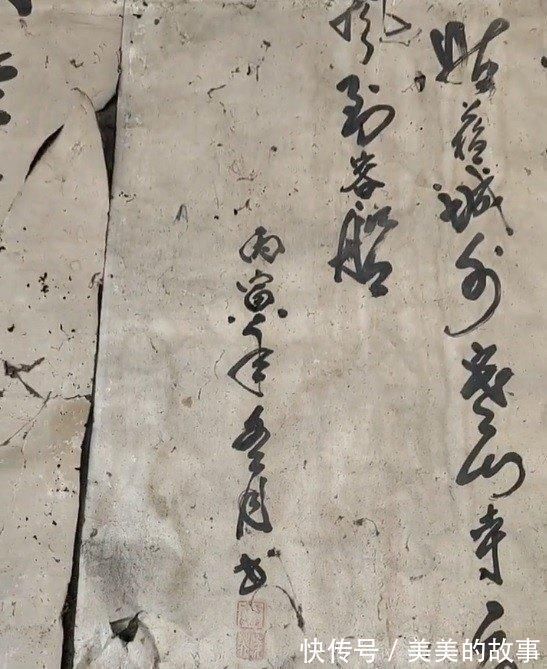 姑蘇城外寒山寺
到客船
丙寅年冬月书
快传号 / 美美的故事